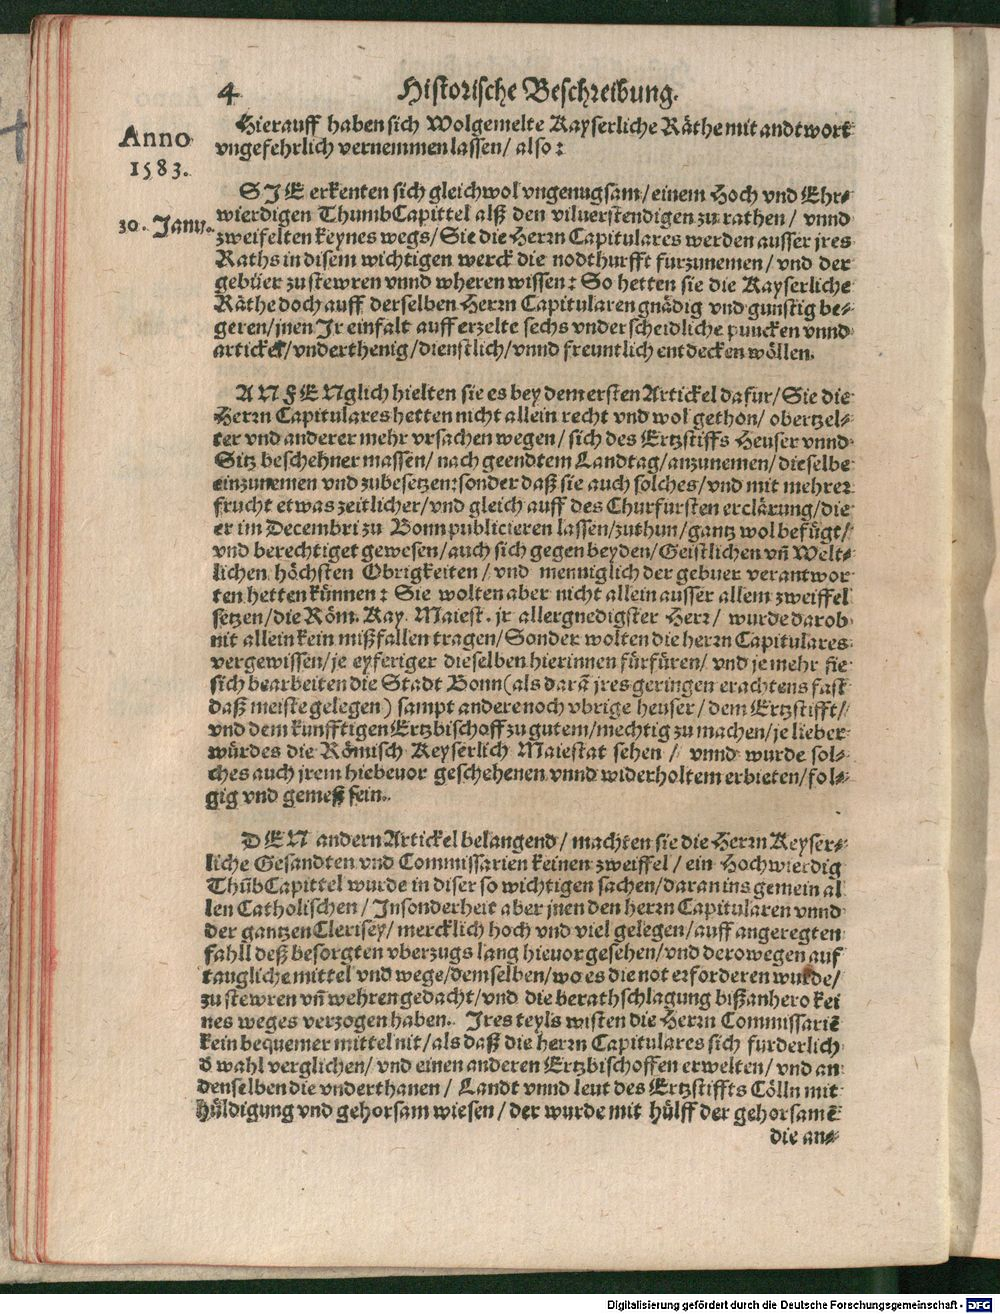 4 Historische Beschreibung.
Anno
1583.
Hierauff haben sich Wolgemelte Kayserliche Räthe mit andtwort
vngefehrlich vernemmen lassen/ also:
30. Janu.
SIE erkenten sich gleichwol vngenugsam/ einem Hoch vnd Ehr-
wierdigen ThumbCapittel alß den viluerstendigen zu rathen/ vnnd
zweifelten keynes wegs/ Sie die Herrn Capitulares werden ausser jres
Raths in disem wichtigen werck die nodthurfft furzunemen/ vnd der
gebüer zu stewren vnnd wheren wissen: So hetten sie die Kayserliche
Räthe doch auff derselben Herrn Capitularen gnädig vnd gunstig be-
geren/ jnen Ir einfalt auff erzelte sechs vnderscheidliche puncken vnnd
artickel/ vnderthenig/ dienstlich/ vnnd freuntlich entdecken wöllen.
ANFENglich hielten sie es bey dem ersten Artickel dafur/ Sie die
Herrn Capitulares hetten nicht allein recht vnd wol gethon/ obertzel-
ter vnd anderer mehr vrsachen wegen/ sich des Ertzstiffs Heuser vnnd
Sitz beschehner massen/ nach geendtem Landtag/ anzunemen/ dieselbe
einzunemen vnd zubesetzen: sonder daß sie auch solches/ vnd mit mehrer
frucht etwas zeitlicher/ vnd gleich auff des Churfursten erclärung/ die
er im Decembri zu Bonn publicieren lassen/ zuthun/ gantz wol befügt/
vnd berechtiget gewesen/ auch sich gegen beyden/ Geistlichen vñ Welt-
lichen höchsten Obrigkeiten/ vnd menniglich der gebuer verantwor
ten hetten künnen: Sie wolten aber nicht allein ausser allem zweiffel
setzen/ die Röm. Kay. Maiest. jr allergnedigster Herr/ wurde darob
nit allein kein mißfallen tragen/ Sonder wolten die herrn Capitulares
vergewissen/ je eyferiger dieselben hierinnen fürfüren/ vnd je mehr sie
sich bearbeiten die Stadt Bonn (als darã jres geringen erachtens fast
daß meiste gelegen) sampt andere noch vbrige heuser/ dem Ertzstifft/
vnd dem kunfftigen Ertzbischoff zu gutem/ mechtig zu machen/ je lieber
würdes die Römisch Keyserlich Maiestat sehen/ vnnd wurde sol-
ches auch jrem hiebeuor geschehenen vnnd widerholtem erbieten/ fol-
gig vnd gemeß sein.
DEN andern Artickel belangend/ machten sie die Herrn Keyser-
liche Gesandten vnd Commissarien keinen zweiffel/ ein Hochwierdig
ThũbCapittel wurde in diser so wichtigen sachen/ daran ins gemein al
len Catholischen/ Insonderheit aber jnen den herrn Capitularen vnnd
der gantzen Clerisey/ mercklich hoch vnd viel gelegen/ auff angeregten
fahll deß besorgten vberzugs lang hieuor gesehen/ vnd derowegen auf
taugliche mittel vnd wege/ demselben/ wo es die not erforderen wurde/
zu stewren vñ wehren gedacht/ vnd die berathschlagung bißanhero kei
nes weges verzogen haben. Ires teyls wisten die Herrn Commissariẽ
kein bequemer mittel nit/ als daß die herrn Capitulares sich furderlich
d̃ wahl verglichen/ vnd einen anderen Ertzbischoffen erwelten/ vnd an
denselben die vnderthanen/ Landt vnnd leut des Ertzstiffts Cölln mit
hüldigung vnd gehorsam wiesen/ der wurde mit hülff der gehorsamẽ
die an-
Digitalisierung gefördert durch die Deutsche Forschungsgemeinschaft - DFG